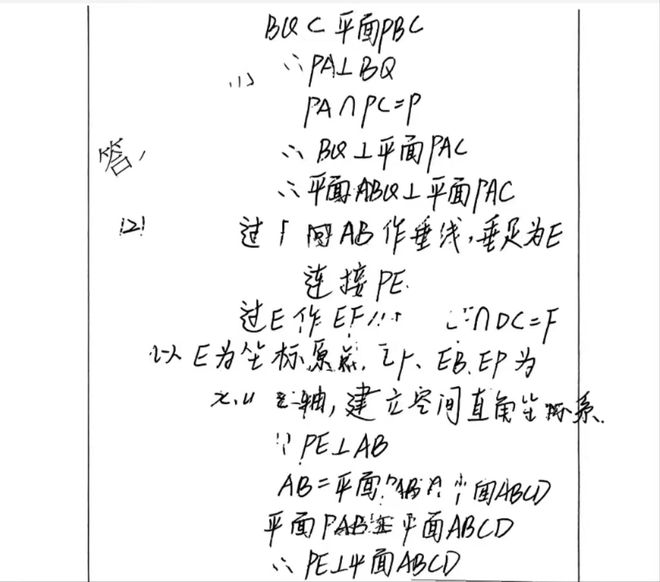 BQ⊂平面PBC
(1) ∴PA⊥BQ
PA∩PC=P
答, ∴BQ⊥平面PAC
∴平面ABQ⊥平面PAC
(2) 过 向AB作垂线,垂足为E
连接PE.
过E作EF ∩DC=F
以E为坐标原点, EB.EP为
x.y z轴,建立空间直角坐标系.
∵PE⊥AB
AB=平面PAB∩平面ABCD
平面PAB⊥平面ABCD
∴PE⊥平面ABCD